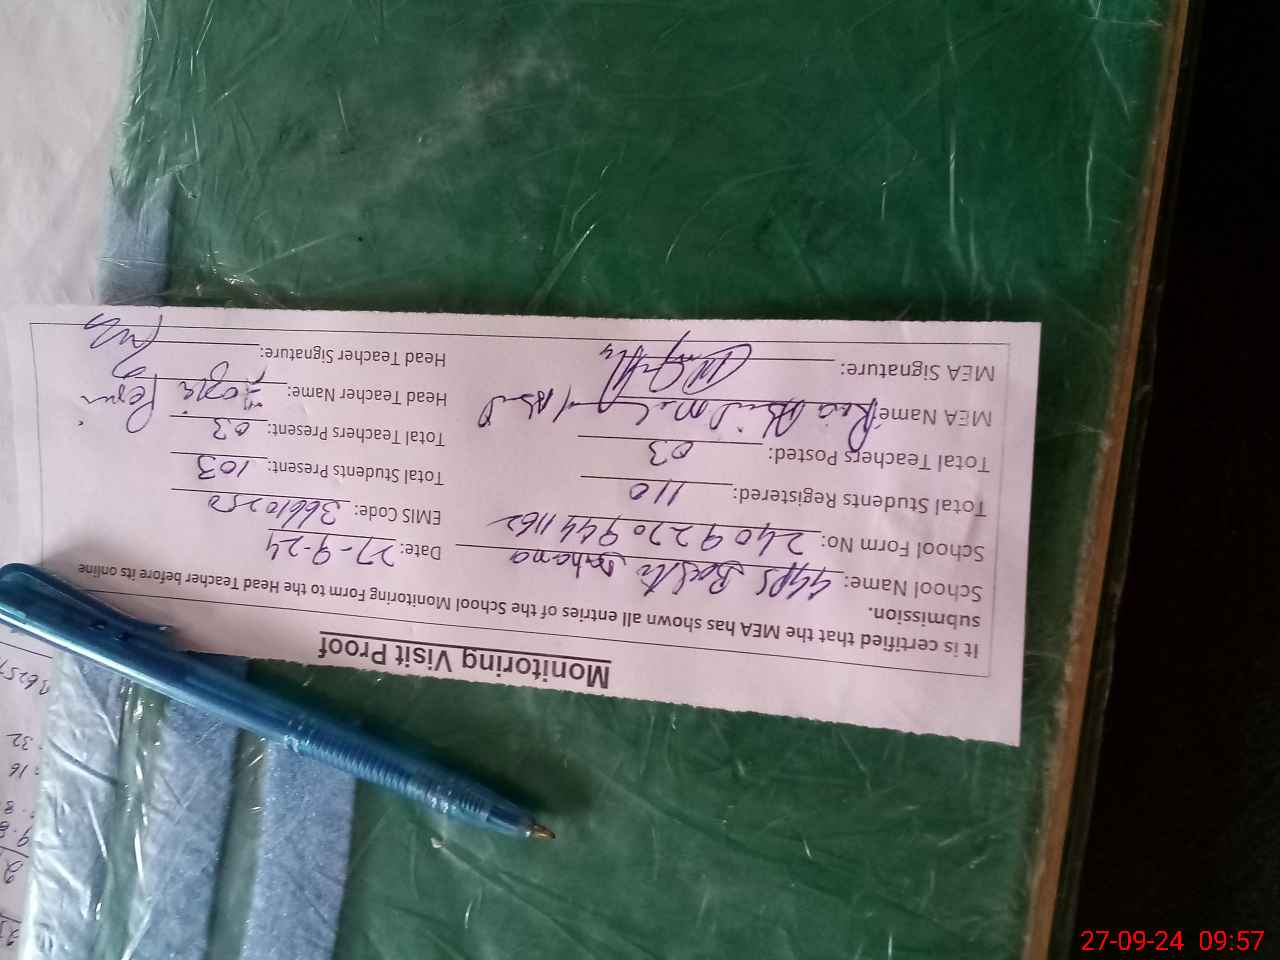 Monitoring Visit Proof
It is certified that the MEA has shown all entries of the School Monitoring Form to the Head Teacher before its online
submission.
School Name: GGPS Basti Date: 27-9-24
School Form No: 24092209441162 EMIS Code: 36610250
Total Students Registered: 110 Total Students Present: 103
Total Teachers Posted: 03 Total Teachers Present: 03
MEA Name: Head Teacher Name:
MEA Signature: Head Teacher Signature:
32
16
27-09-24 09:57